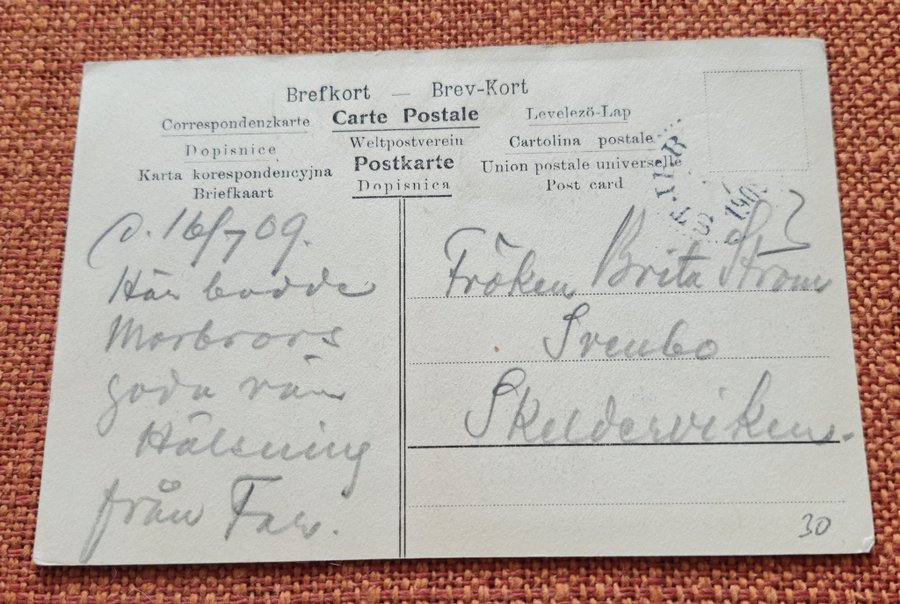 Brefkort — Brev-Kort
Correspondenzkarte Carte Postale Levelezö-Lap
Dopisnice Weltpostverein Cartolina postale
Karta korespondencyjna Postkarte Union postale universelle
Briefkaart Dopisnica Post card
16/7 09.
Här bodde
Morbrors
goda vän
Hälsning
från Far.
Fröken Brita Ström
Svenbo
Skelderviken.
30